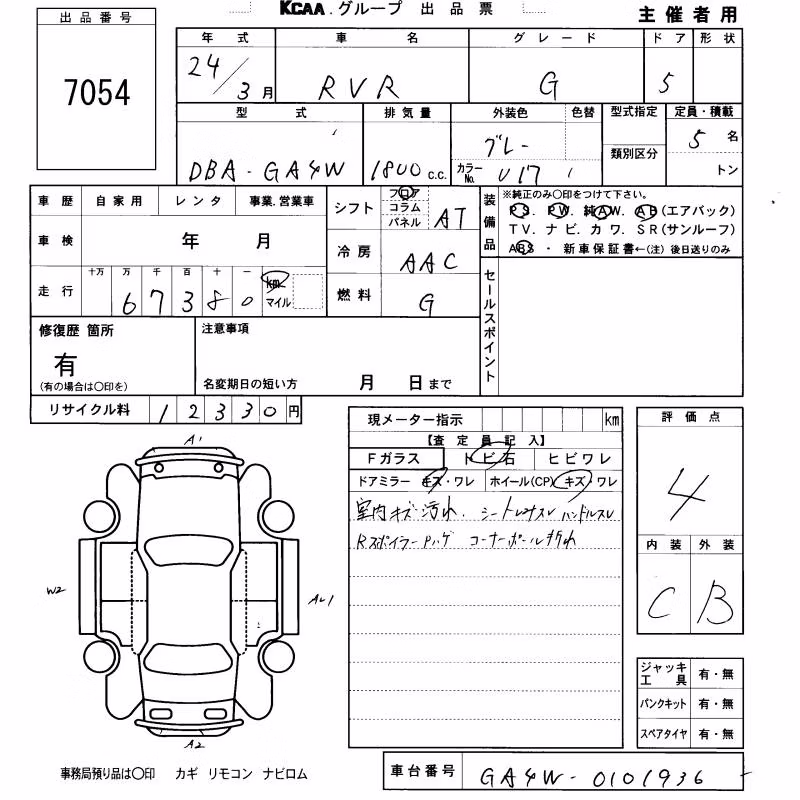 KCAA.グループ 出品票
主催者用
出品番号
7054
年式 車名 グレード ドア 形状
24/3月 RVR G 5
型式 排気量 外装色 色替 型式指定 定員・積載
DBA-GA4W 1800c.c. グレー カラーNo. U17 類別区分 5名
トン
車歴 自家用 レンタ 事業.営業車
シフト フロア コラム パネル AT
装備品 ※純正のみ○印をつけて下さい。
PS. PW. 純AW. AB(エアバック)
TV. ナビ. カワ. SR(サンルーフ)
ABS ・ 新車保証書←(注)後日送りのみ
車検 年 月
冷房 AAC
走行 十万 万 千 百 十 一 km マイル
67380
燃料 G
セールスポイント
修復歴 箇所 注意事項
有
(有の場合は○印を) 名変期日の短い方 月 日まで
リサイクル料 12330円
現メーター指示 km
【査定員記入】
Fガラス トビ石 ヒビワレ
ドアミラー キズ・ワレ ホイール(CP) キズ・ワレ
室内キズ汚れ. シートレ ハンドルスレ
Rスポイラー Pハゲ コーナーポール折れ
評価点
4
内装 外装
C B
A1
W2
AU1
A2
ジャッキ工具 有・無
パンクキット 有・無
スペアタイヤ 有・無
事務局預り品は○印 カギ リモコン ナビロム
車台番号 GA4W-0101936